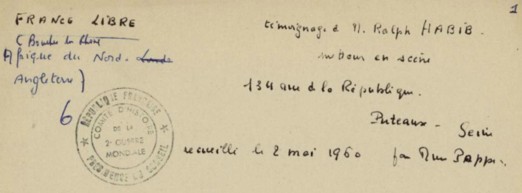 1
FRANCE LIBRE
(Bouches du Rhône
Afrique du Nord.
Angleterre)
6
témoignage d M. Ralph HABIB.
metteur en scène
134 av. de la République.
Puteaux - Seine
recueilli le 2 mai 1960 par Mme
RÉPUBLIQUE FRANÇAISE
COMITÉ D'HISTOIRE
DE LA
2e GUERRE
MONDIALE
PRÉSIDENCE DU CONSEIL